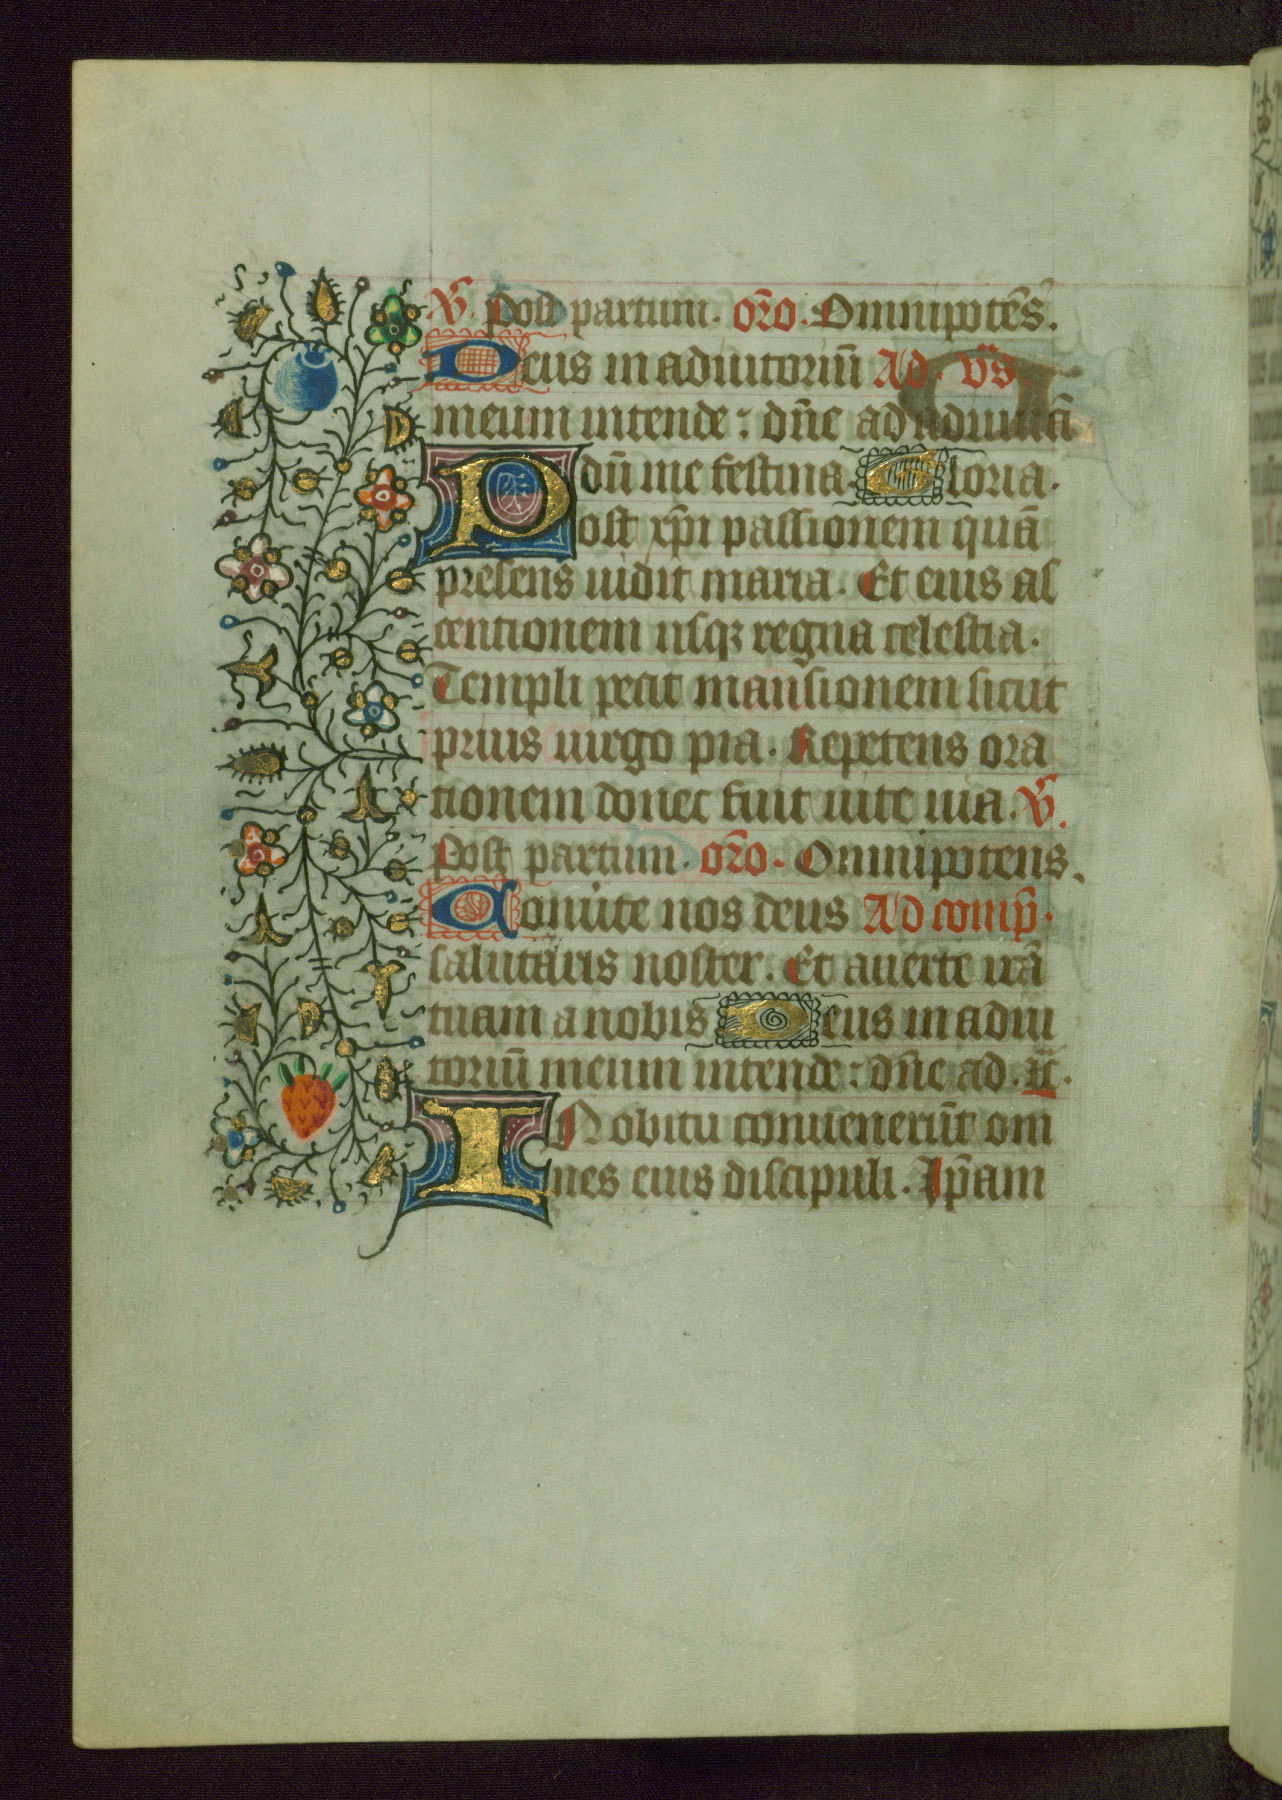 V̄. Post partum. or̄o. Omnipotēs.
Deus in adiutoriū Ad. vs̄.
meum intende: dn̄e ad adiuuā
dū me festina. Gloria.
Post xp̄i passionem quā
presens uidit maria. Et eius as
centionem usqꝫ regna celestia.
Templi petit mansionem sicut
prius uirgo pia. Repetens ora
tionem donec fuit uite uia. V̄.
Post partum. or̄o. Omnipotens.
Conuite nos deus Ad comp̄.
salutaris noster. Et auerte irā
tuam a nobis Deus in adiu
toriū meum intende: dn̄e ad.
IN obitu conuenerūt om
nes eius discipuli. Ip̄am